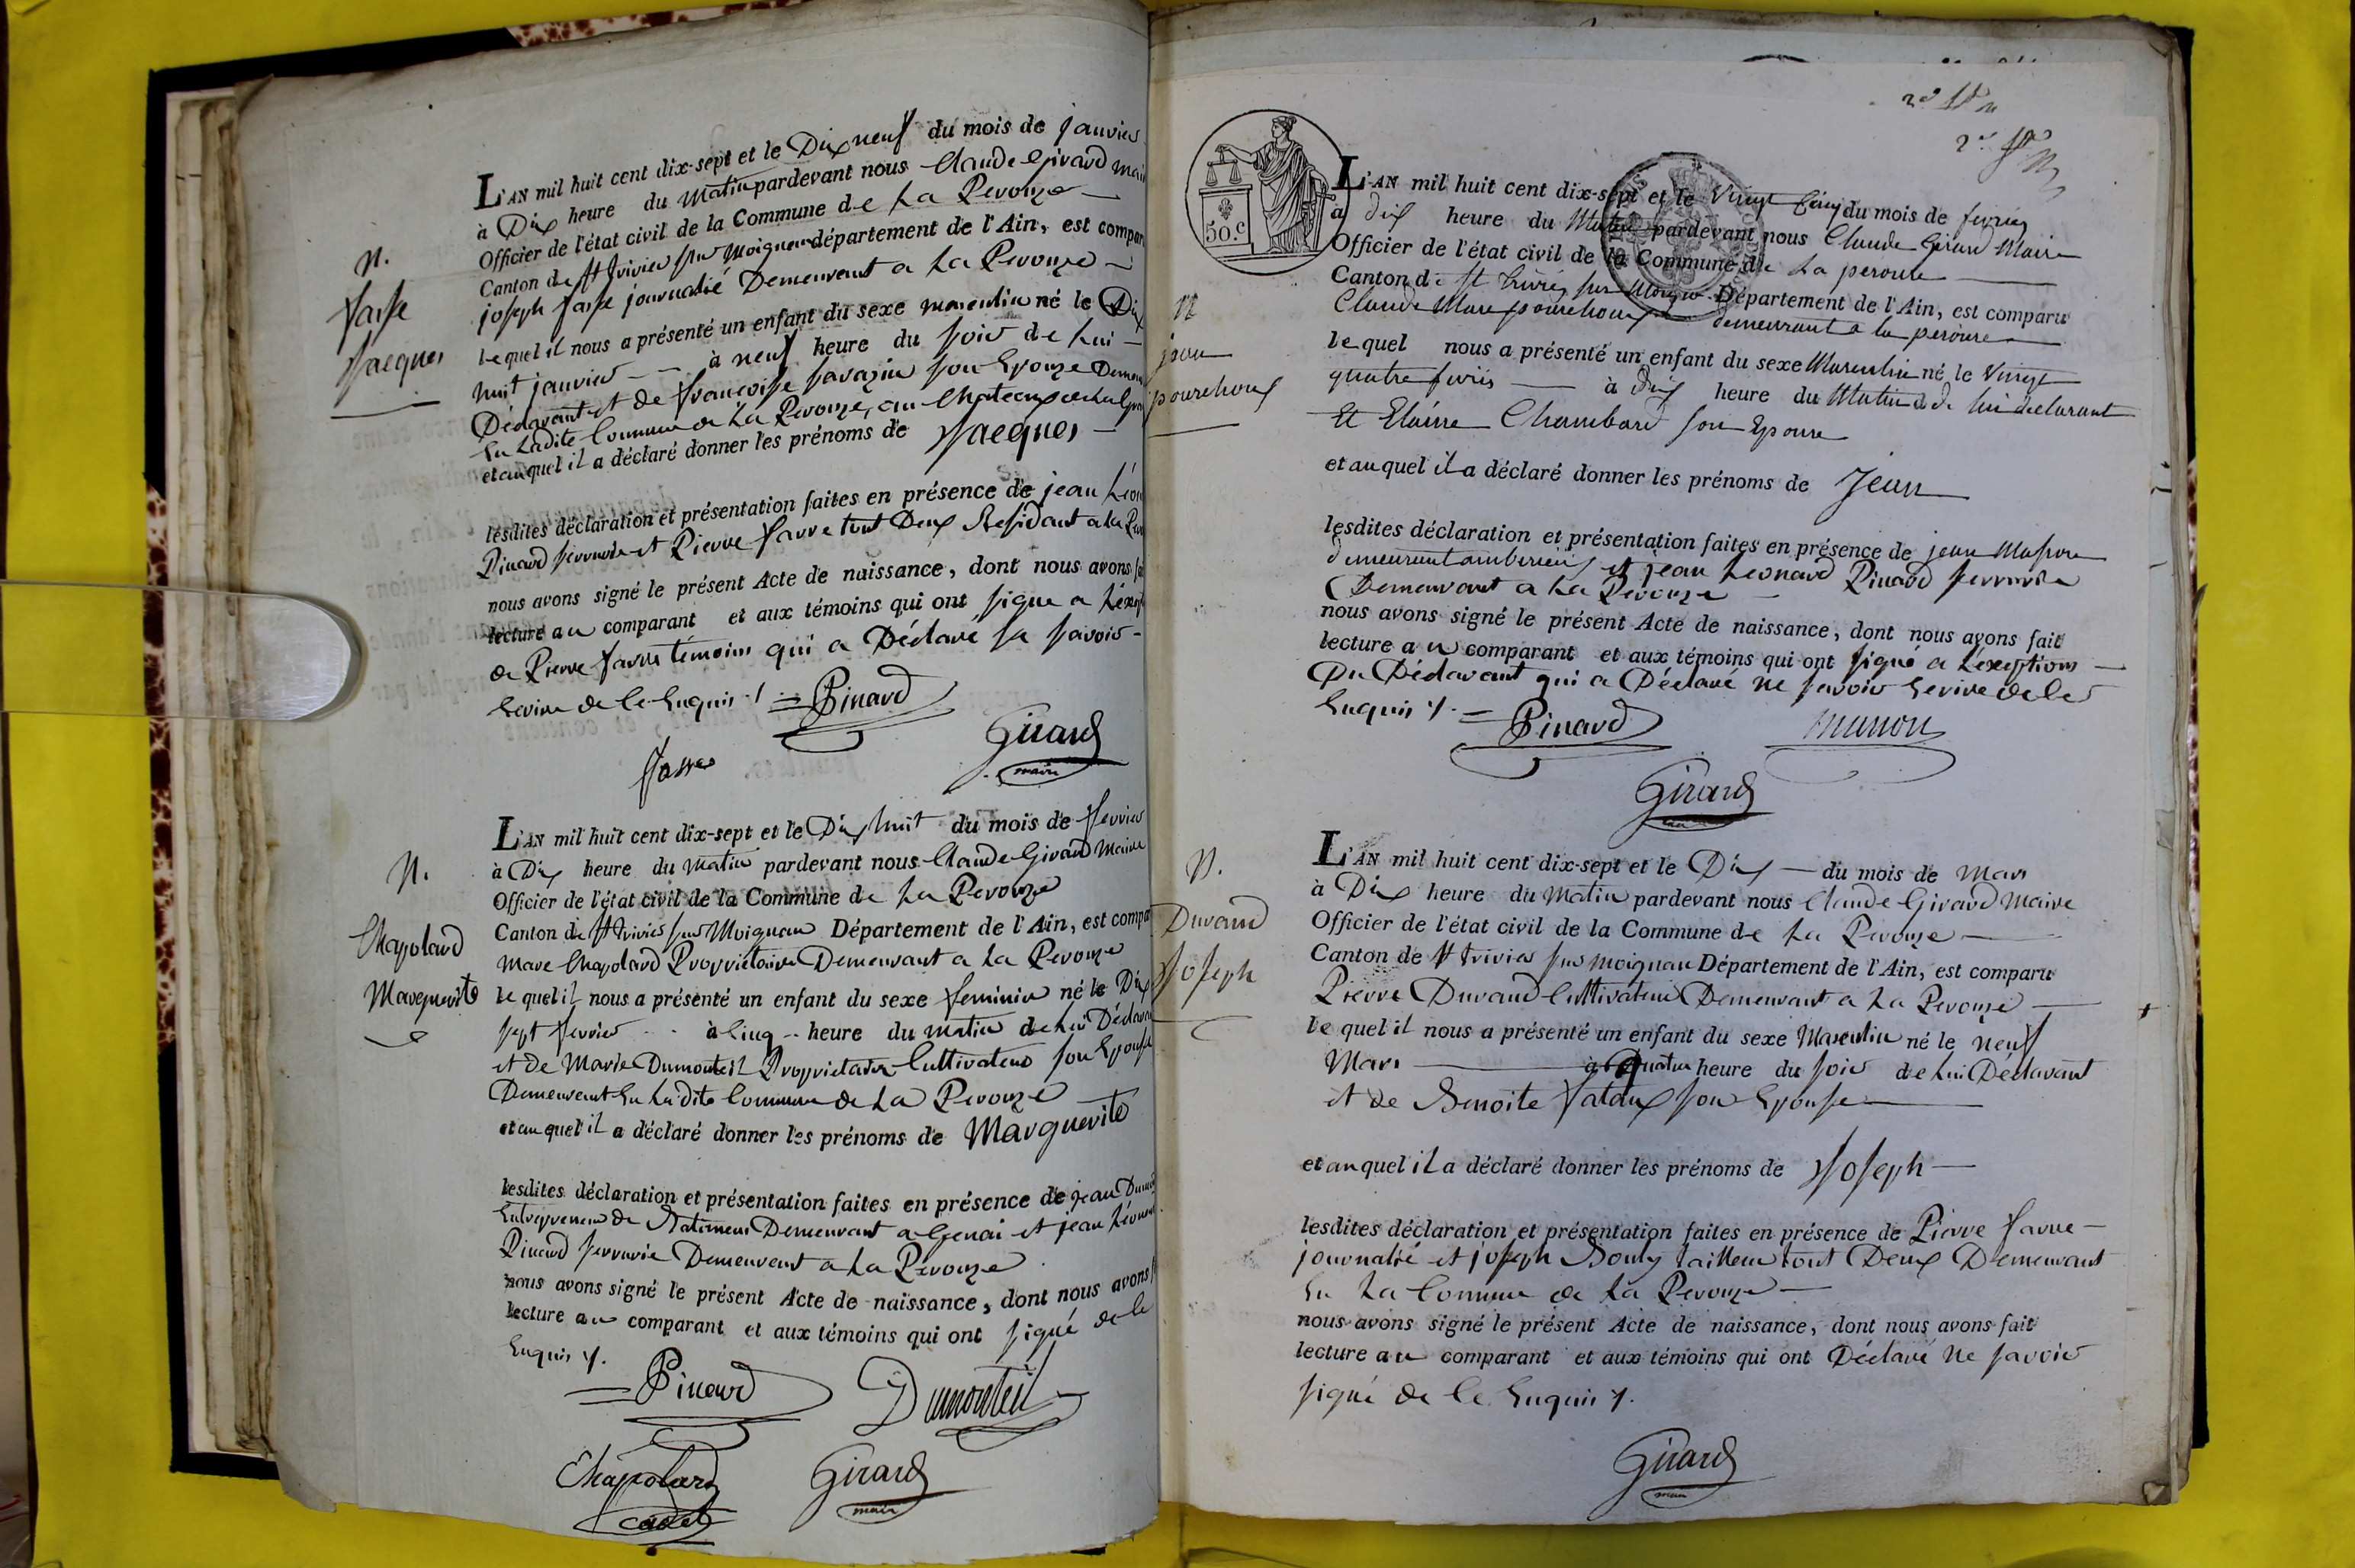 N.
Jasse
Jacques
L'AN mil huit cent dix-sept et le Dix neuf du mois de janvier
à Dix heure du Matin pardevant nous Claude Girard mai
Officier de l'état civil de la Commune de La Perouze
Canton de St Trivier sur Moignan département de l'Ain, est compar
joseph jasse journalié Demeurant a La Perouze
lequel il nous a présenté un enfant du sexe masculin né le Dix
huit janvier à neuf heure du soir de Lui
Déclarant et de francoise savazin son Epouze Demeu
En Ladite Commune de La Perouze, au Chateau
et au quel il a déclaré donner les prénoms de Jacques
lesdites déclaration et présentation faites en présence de jean Léon
Pinard serrurié et Pierre favre tout Deux Residant a La Per
nous avons signé le présent Acte de naissance, dont nous avons fai
lecture au comparant et aux témoins qui ont signe a Lexcep
de Pierre favre témoins qui a Déclaré sa savoir
Ecrire de ce Enquis
Pinard
Girard
maire
Jasse
N.
Chapolard
Marguerite
L'AN mil huit cent dix-sept et le Dix huit du mois de fevrier
à Dix heure du Matin pardevant nous Claude Girard Maire
Officier de l'état civil de la Commune de La Perouze
Canton de St Trivier sur Moignan Département de l'Ain, est compar
Marc Chapolard Propriétaire Demeurant a La Perouze
le quel il nous a présenté un enfant du sexe feminin né le Dix
sept fevrier à Cinq heure du matin de Lui Déclara
et de Marie Dumonteil Propriétaire Cultivateur son Epouse
Demeurant En Ladite Commune de La Perouze
et au quel il a déclaré donner les prénoms de Marguerite
lesdites déclaration et présentation faites en présence de jean Dumon
Entrepreneur de Batimens Demeurant a Genai et jean Léonard
Pinard serrurié Demeurant a La Pérouze
nous avons signé le présent Acte de naissance, dont nous avons f
lecture au comparant et aux témoins qui ont signé de ce
Enquis
Pinard Dumonteil
Chapolard Girard
cadet maire
50.c
N
jean
pourchoux
L'AN mil huit cent dix-sept et le Vingt Cinq du mois de fevrier
à dix heure du Matin pardevant nous Claude Girard Maire
Officier de l'état civil de la Commune de La perouse
Canton de St Trivier sur Moigno Département de l'Ain, est comparu
Claude Marc pourchoux demeurant a la perouse
lequel nous a présenté un enfant du sexe Masculin né le Vingt
quatre fevrié à dix heure du Matin de lui declarant
Et Chambard son Epouse
et au quel il a déclaré donner les prénoms de Jean
lesdites déclaration et présentation faites en présence de jean
demeurant amberieux et jean Leonard Pinard serrurié
Demeurant a La Perouze
nous avons signé le présent Acte de naissance, dont nous avons fait
lecture au comparant et aux témoins qui ont signé a L'exeption
Du Déclarant qui a Déclaré ne savoir Ecrire de ce
Enquis
Pinard
Girard
N.
Durand
Joseph
L'AN mil huit cent dix-sept et le Dix du mois de Mars
à Dix heure du Matin pardevant nous Claude Girard Maire
Officier de l'état civil de la Commune de La Perouze
Canton de St Trivier sur Moignan Département de l'Ain, est comparu
Pierre Durand Cultivateur Demeurant a La Perouze
le quel il nous a présenté un enfant du sexe Masculin né le neuf
Mars à quatre heure du soir de Lui Déclarant
et de Benoite fataux son Epouse
et au quel il a déclaré donner les prénoms de Joseph
lesdites déclaration et présentation faites en présence de Pierre favre
journalié et joseph Bouly tailleur tout Deux Demeurant
En La Commune de La Perouze
nous avons signé le présent Acte de naissance, dont nous avons fait
lecture au comparant et aux témoins qui ont Déclaré ne savoir
signé de ce Enquis
Girard
maire